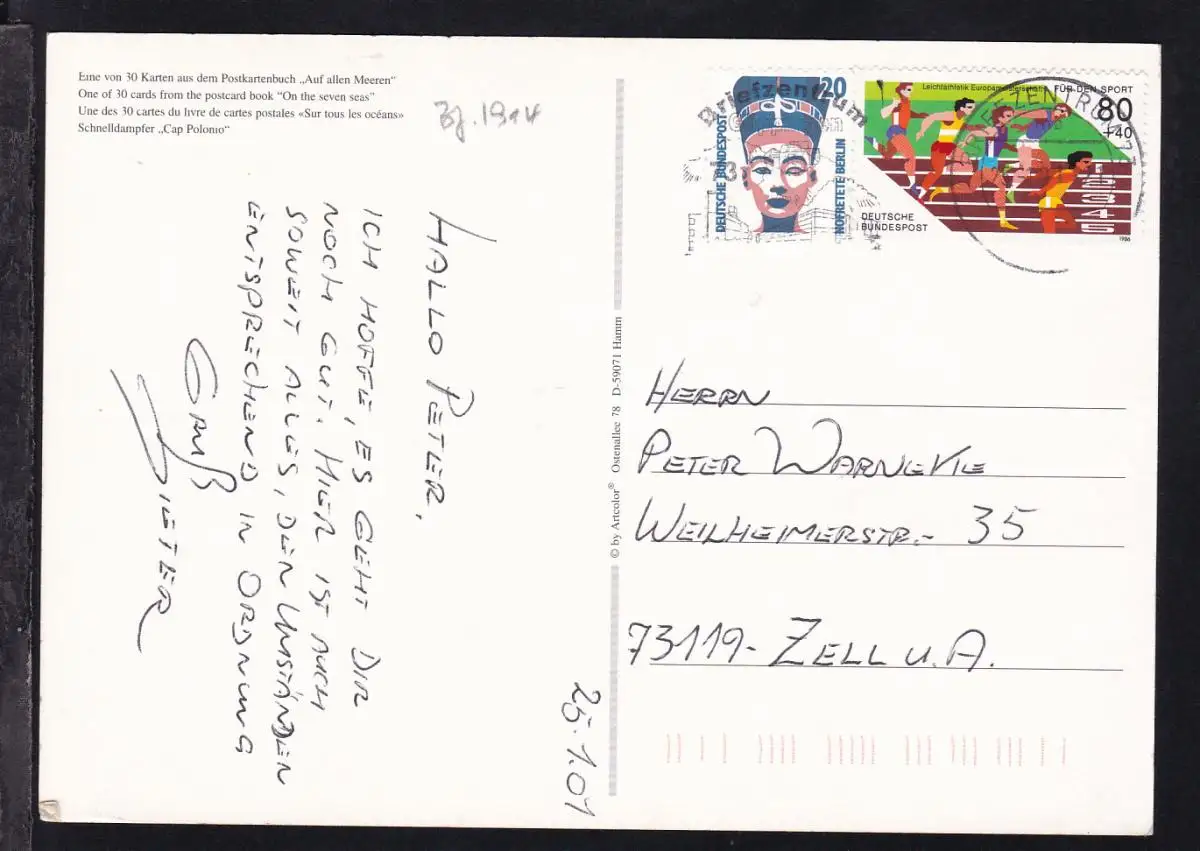 Eine von 30 Karten aus dem Postkartenbuch „Auf allen Meeren“
One of 30 cards from the postcard book “On the seven seas”
Une des 30 cartes du livre de cartes postales «Sur tous les océans»
Schnelldampfer „Cap Polonio“
Bj. 1914
HALLO PETER,
ICH HOFFE, ES GEHT DIR
NOCH GUT. HIER IST AUCH
SOWEIT ALLES, DEN UMSTÄNDEN
ENTSPRECHEND IN ORDNUNG
GRUß
DIETER
25.1.01
© by Artcolor® Ostenallee 78 D-59071 Hamm
Briefzentrum
Göppingen
73
20
DEUTSCHE BUNDESPOST
NOFRETETE/BERLIN
Leichtathletik Europameisterschaft
FÜR DEN SPORT
80
+40
DEUTSCHE
BUNDESPOST
1986
BRIEFZENTRUM
HERRN
PETER WARNEKE
WEILHEIMERSTR.- 35
73119- ZELL U. A.